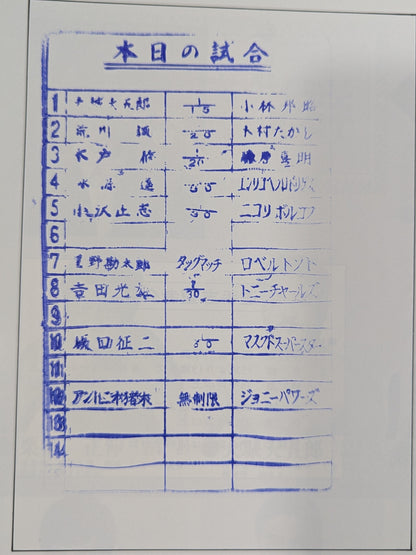 本日の試合
1 1/15 小林邦昭
2 荒川誠 1/20 木村たかし
3 木戸修 1/20 明
4 永源遙
5 小沢正志 ニコリボルコフ
6
7 星野勘太郎 タッグマッチ ロベルトソト
8 吉田光雄 1/30 トニーチャールズ
9
10 坂口征二 マスクドスーパースター
11
12 アントニオ猪木 無制限 ジョニーパワーズ
13
14